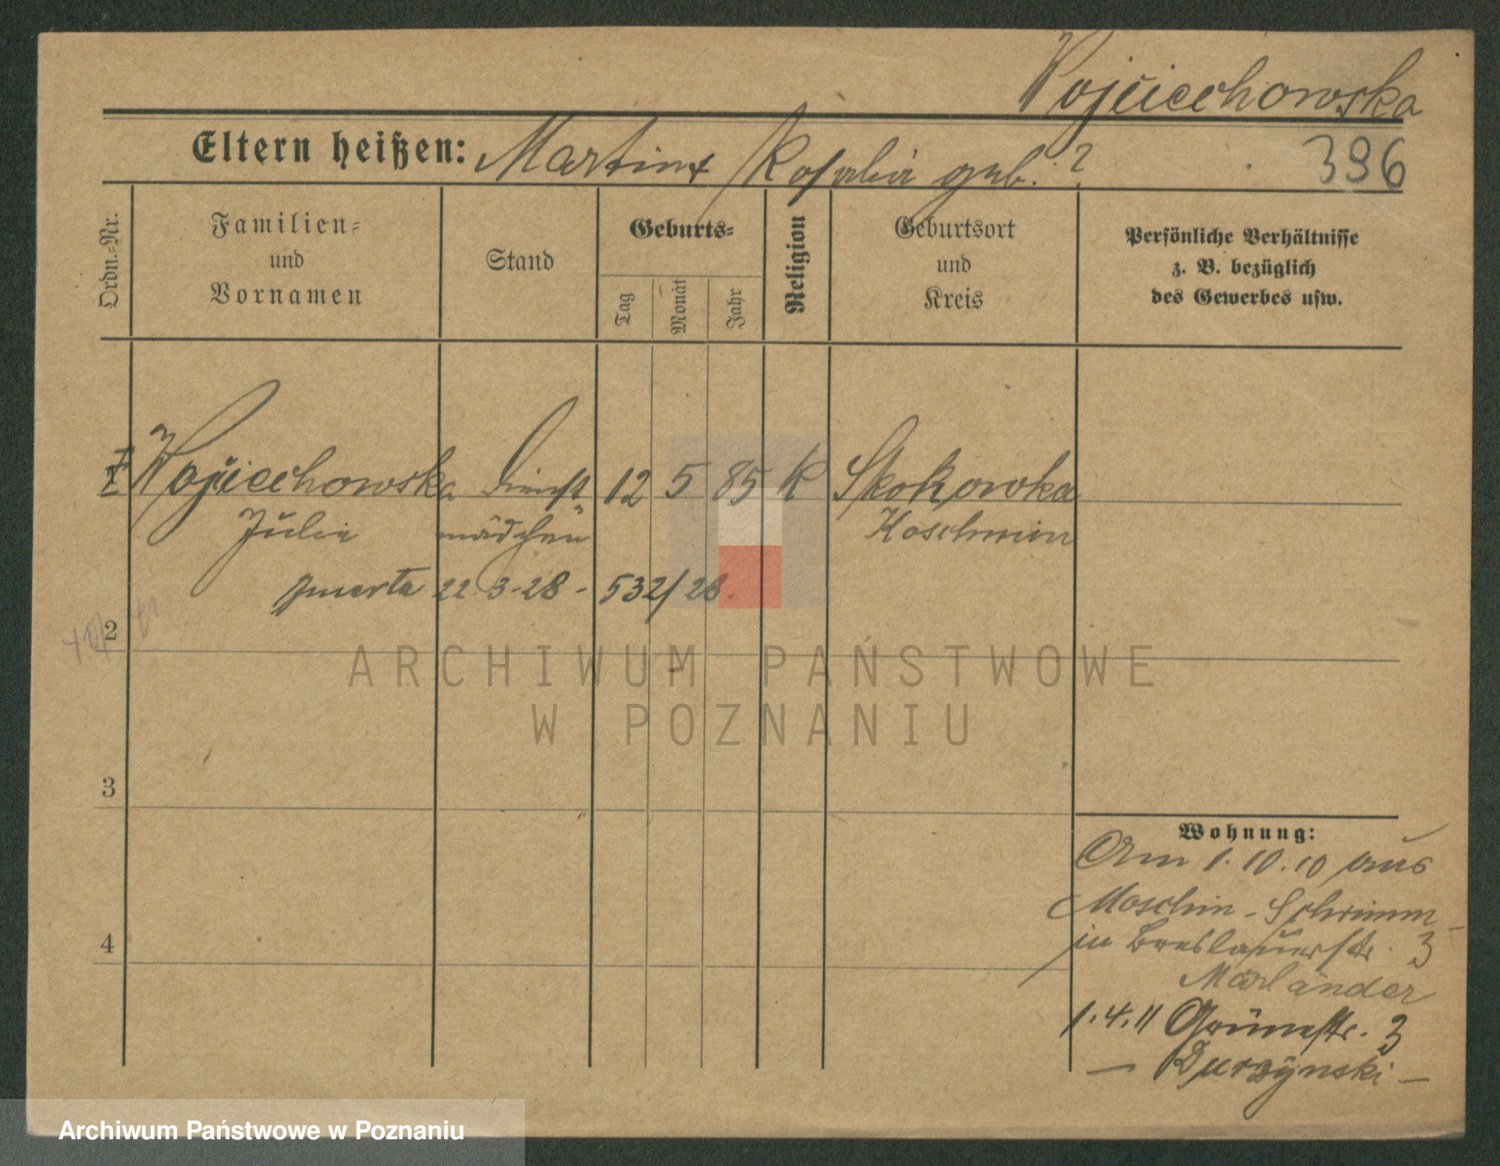 Wojciechowska
Eltern heißen: Martin + Rosalia geb. ?
396
Ordn.-Nr.
Familien-
und
Vornamen
Stand
Geburts-
Tag
Monat
Jahr
Religion
Geburtsort
und
Kreis
Persönliche Verhältnisse
z. B. bezüglich
des Gewerbes usw.
Wojciechowska Dienst 12 5 85 K Skokowka
Julie mädchen Koschmin
zmarła 22.3.28 - 532/28.
2
ARCHIWUM PAŃSTWOWE
W POZNANIU
3
4
Wohnung:
Am 1.10.10 aus
Moschin - Schrimm -
in Breslauerstr. 3
Marländer
1.4.11 Grünestr. 3
— Durzynski —
Archiwum Państwowe w Poznaniu